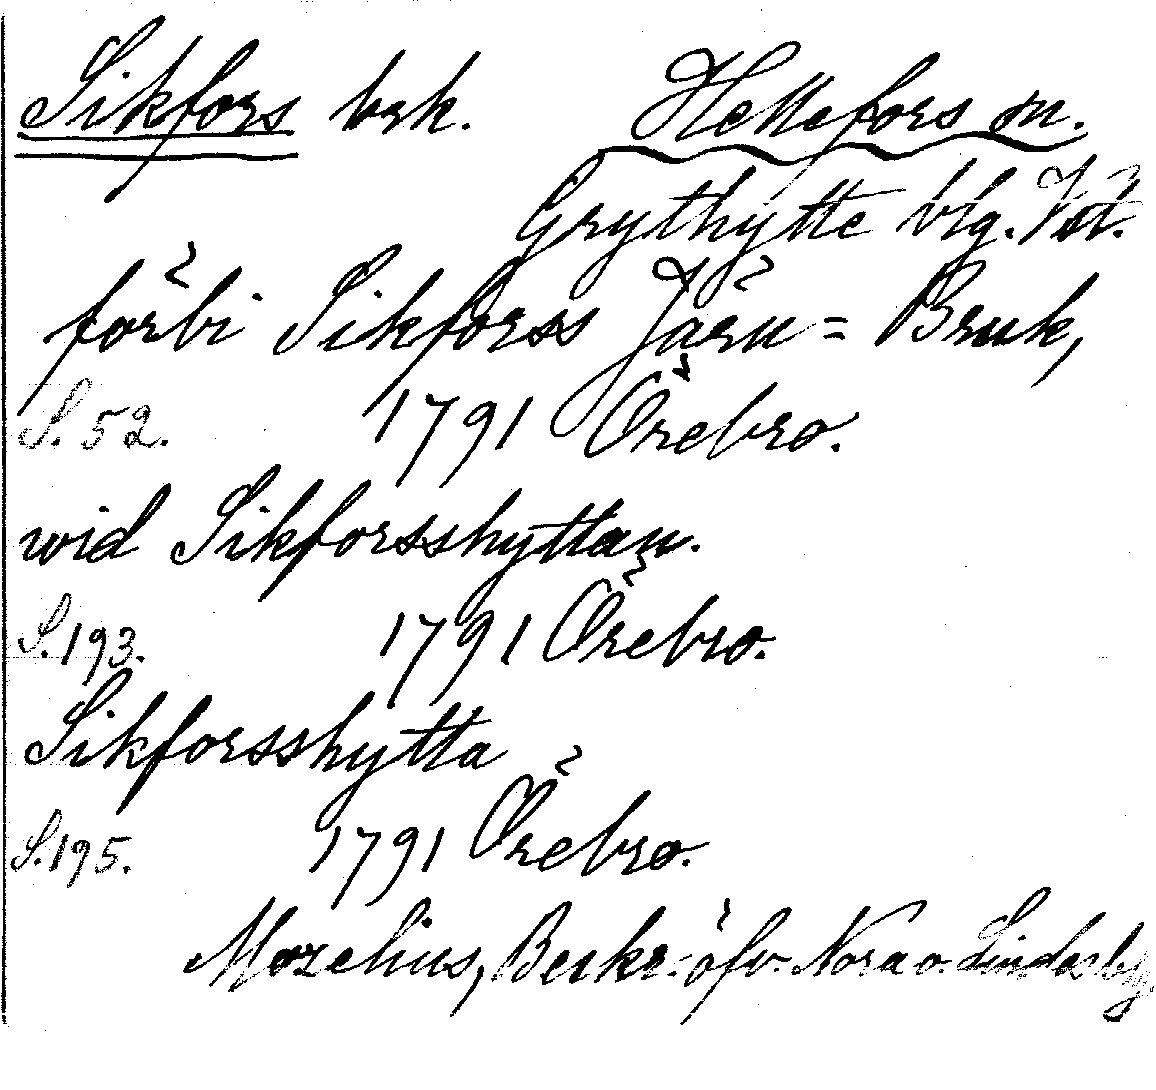 Sikfors brk. Hellefors sn.
Grythytte blg. Vst.
förbi Sikforss Järn = Bruk,
S. 52. 1791 Örebro.
wid Sikforsshyttan.
S. 193. 1791 Örebro.
Sikforsshytta
S. 195. 1791 Örebro.
Mozelius, Beskr. öfv. Nora o. Lindesbg.